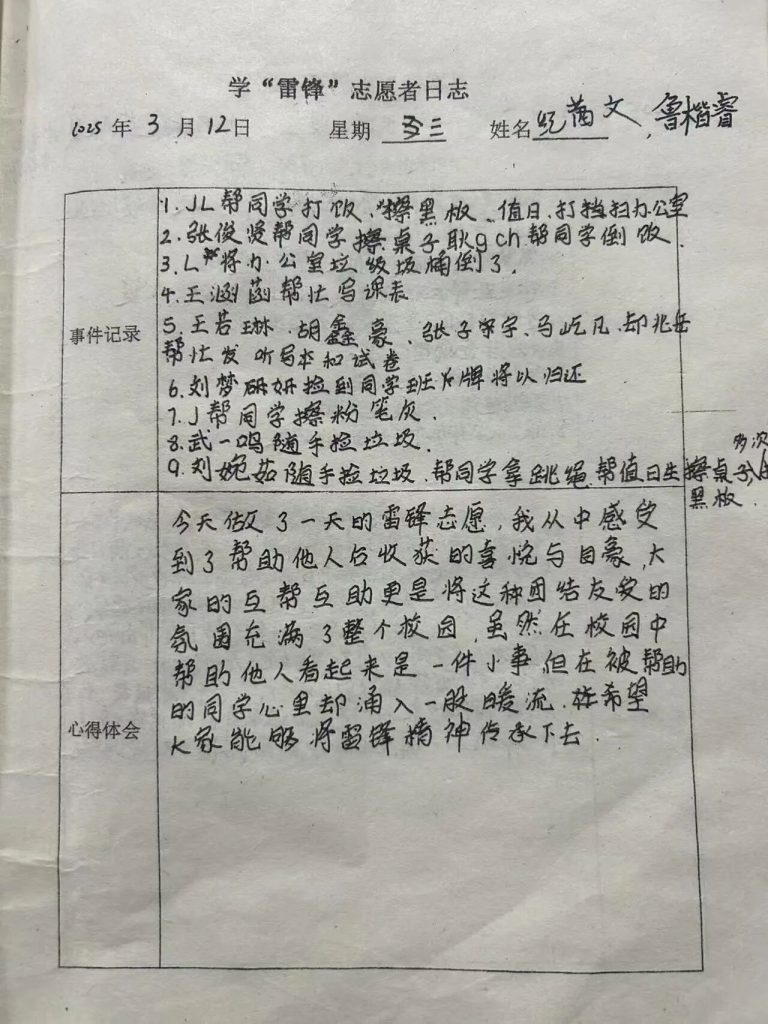 学“雷锋”志愿者日志
2025 年 3 月 12 日 星期 三 姓名 纪茜文, 鲁楷睿
事件记录
1. JL 帮同学打饭、擦黑板、值日、打扫办公室
2. 张俊贤帮同学擦桌子耿gch帮同学倒饭.
3. L 将办公室垃圾桶倒了.
4. 王涵菡帮忙写课表
5. 王若琳、胡鑫豪、张子宇、马屹凡、却兆岳
帮忙发听写本和试卷
6. 刘梦妍捡到同学班名牌将以归还
7. J帮同学擦粉笔灰.
8. 武一鸣随手捡垃圾.
9. 刘婉茹随手捡垃圾、帮同学拿跳绳、帮值日生擦桌子
多次
黑板.
心得体会
今天做了一天的雷锋志愿,我从中感受
到了帮助他人后收获的喜悦与自豪,大
家的互帮互助更是将这种团结友爱的
氛围充满了整个校园,虽然在校园中
帮助他人看起来是一件小事,但在被帮助
的同学心里却涌入一股暖流.希望
大家能够将雷锋精神传承下去.